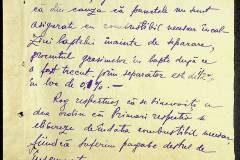 că din cauză că fermele nu sunt
asigurate cu combustibil necesar încăl-
zirei laptelui înainte de separare,
procentul grăsimelor în lapte după ce
a fost trecut prin separator este de
în loc de 0,1% —
Rog respectuos că să binevoiți a
da ordin că Primarii respectivi să
elibereze deîndată combustibil necesar
fiindcă suferim pagube destul de